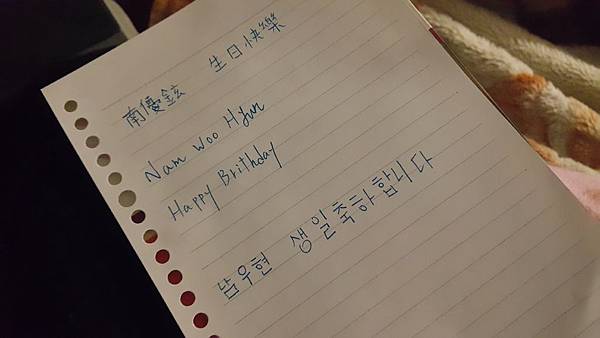 南優鉉 生日快樂
Nam Woo Hyun
Happy Brithday
남우현 생일축하합니다